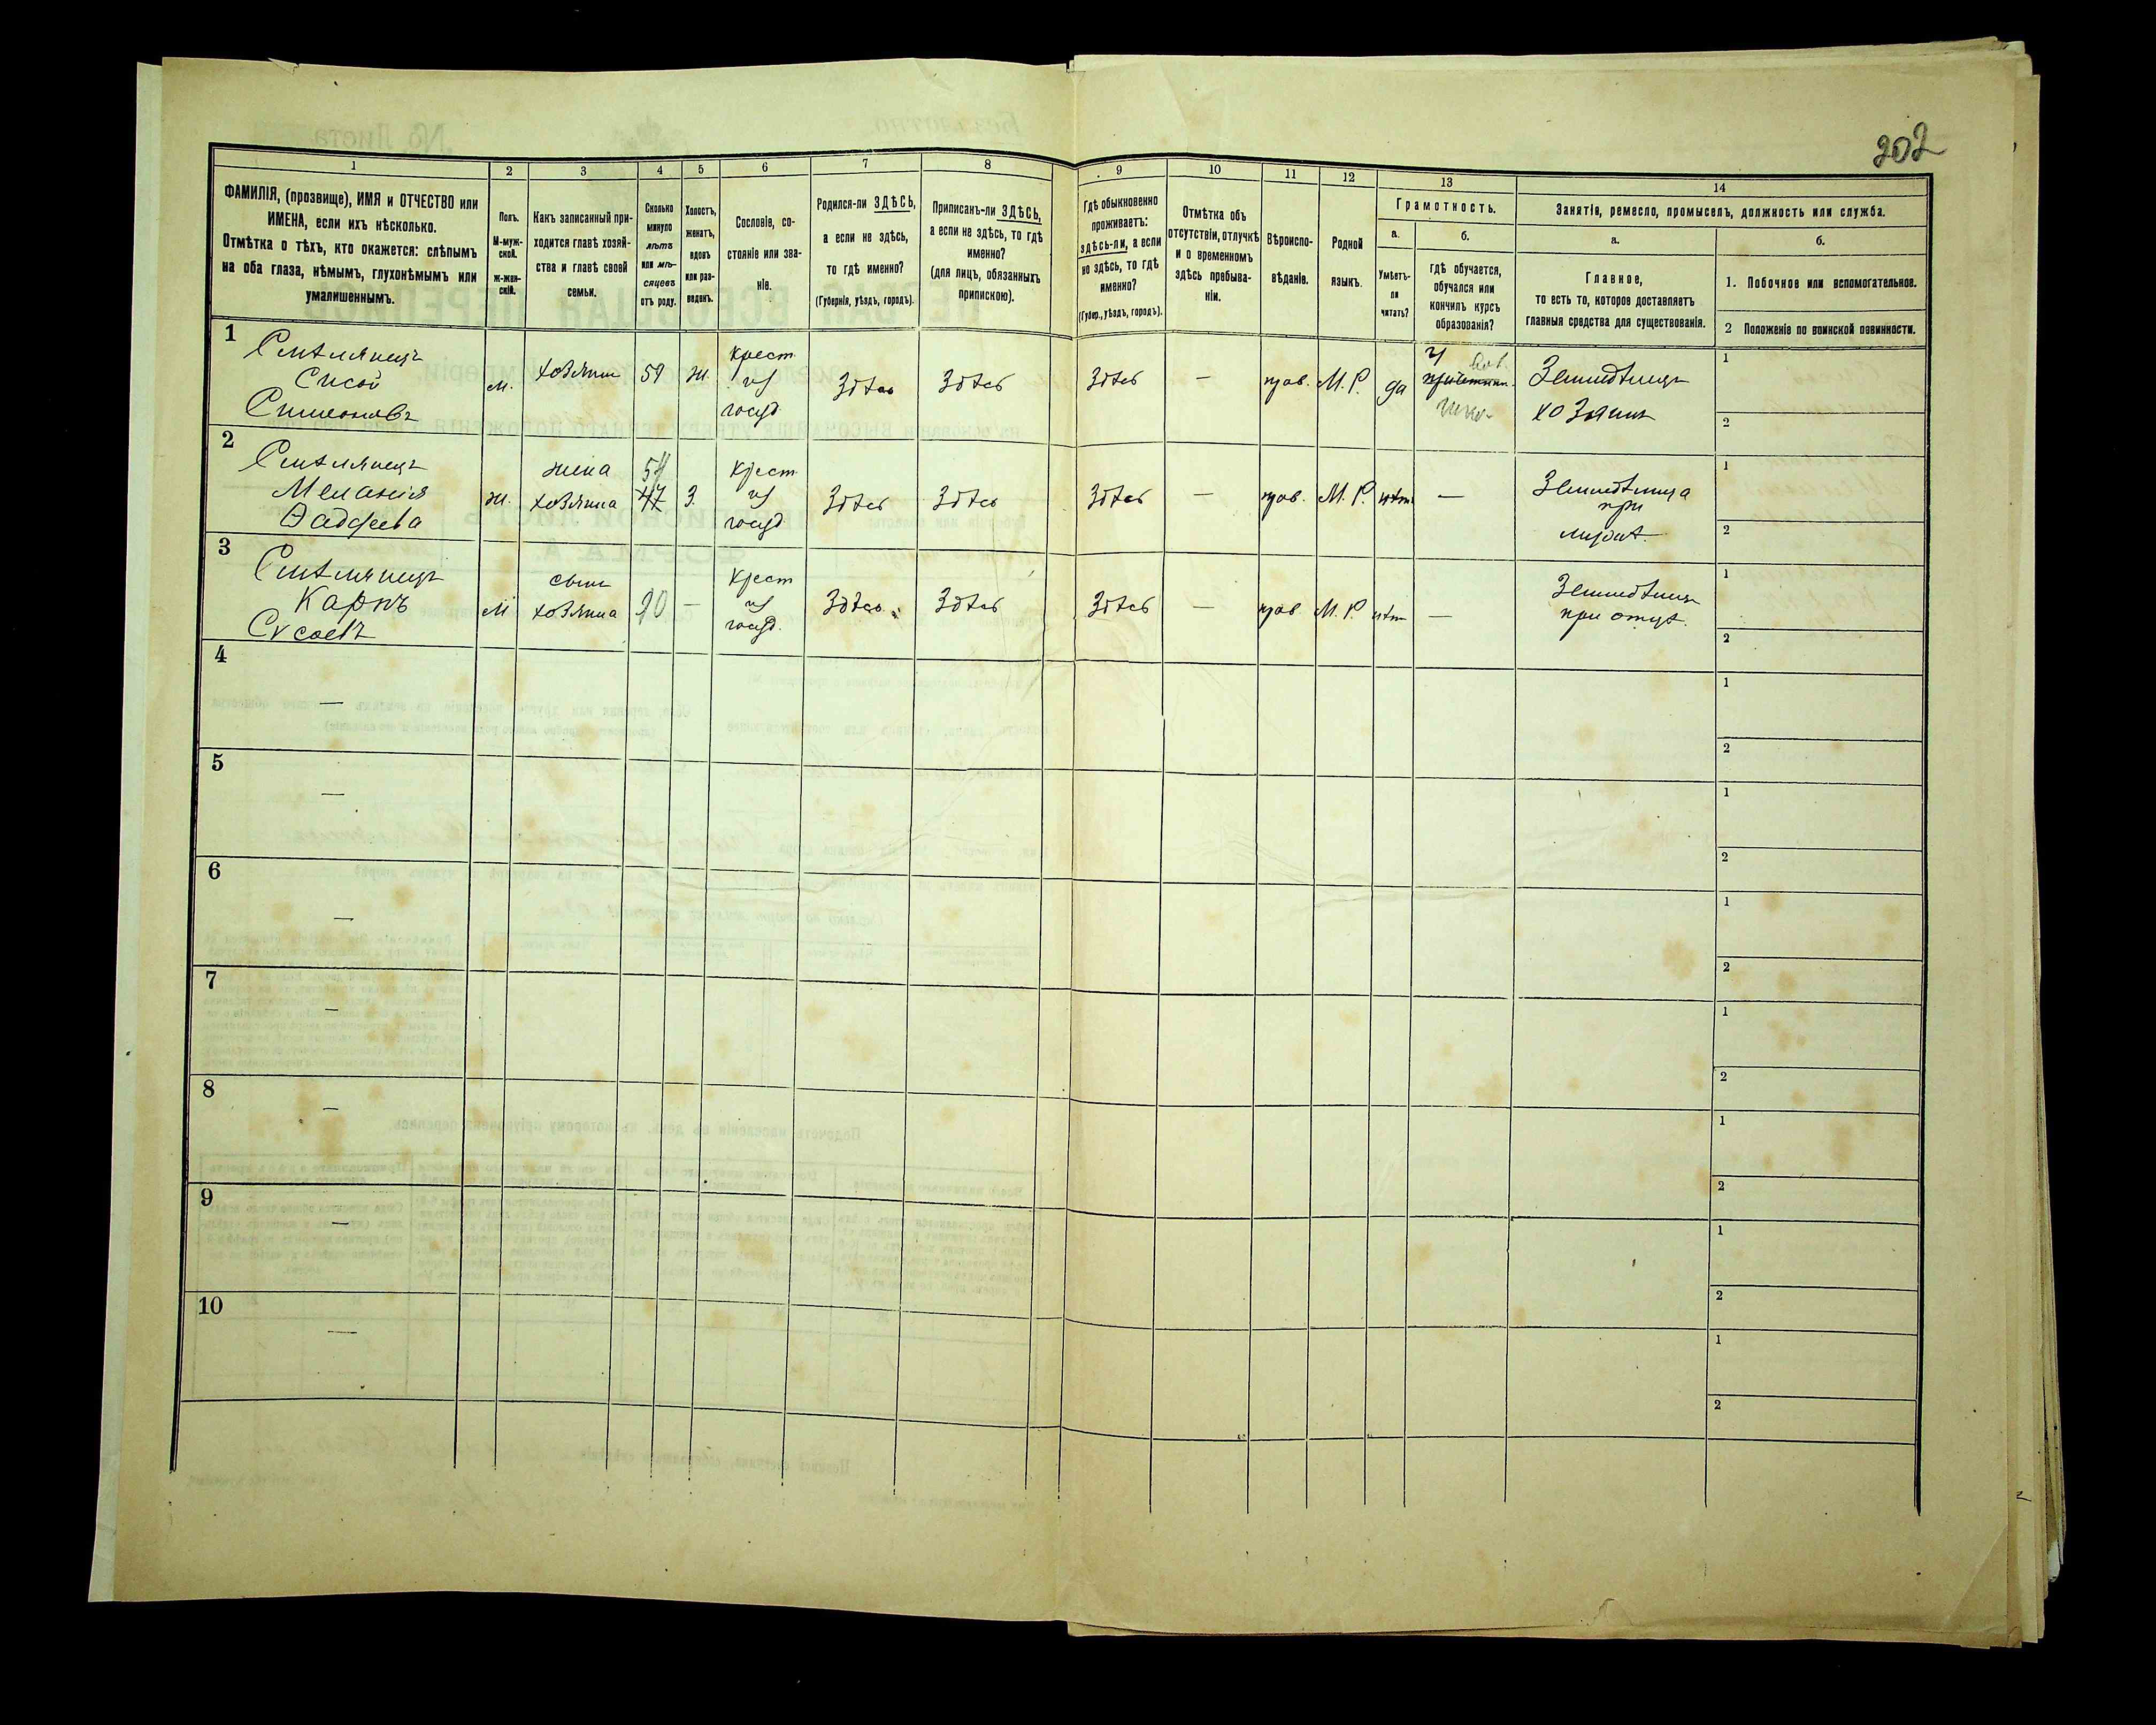 202
1
2
3
4
5
6
7
8
9
10
11
12
13
14
ФАМИЛІЯ, (прозвище), ИМЯ и ОТЧЕСТВО или
ИМЕНА, если ихъ нѣсколько.
Отмѣтка о тѣхъ, кто окажется: слѣпымъ
на оба глаза, нѣмымъ, глухонѣмымъ или
умалишеннымъ.
Полъ.
М-муж-
ской.
ж-жен-
скій.
Какъ записанный при-
ходится главѣ хозяй-
ства и главѣ своей
семьи.
Сколько
минуло
лѣтъ
или мѣ-
сяцевъ
отъ роду.
Холостъ,
женатъ,
вдовъ
или раз-
веденъ.
Сословіе, со-
стояніе или зва-
ніе.
Родился-ли ЗДѢСЬ,
а если не здѣсь,
то гдѣ именно?
(Губернія, уѣздъ, городъ).
Приписанъ-ли ЗДѢСЬ,
а если не здѣсь, то гдѣ
именно?
(для лицъ, обязанныхъ
припискою).
Гдѣ обыкновенно
проживаетъ:
здѣсь-ли, а если
не здѣсь, то гдѣ
именно?
(Губер., уѣздъ, городъ).
Отмѣтка объ
отсутствіи, отлучкѣ
и о временномъ
здѣсь пребыва-
ніи.
Вѣроиспо-
вѣданіе.
Родной
языкъ.
Грамотность.
а.
Умѣетъ-
ли
читать?
б.
гдѣ обучается,
обучался или
кончилъ курсъ
образованія?
Занятія, ремесло, промыселъ, должность или служба.
а.
Главное,
то есть то, которое доставляетъ
главныя средства для существованія.
б.
1. Побочное или вспомогательное.
2 Положеніе по воинской повинности.
1
Смѣлянецъ
Сисой
Симоновъ
м.
хозяинъ
59
ж
крест
из
госуд.
Здѣсь
Здѣсь
Здѣсь
—
прав.
М. Р.
да
Земледѣлецъ
хозяинъ
1
2
2
Смѣлянецъ
Меланія
Ѳаддеева
ж.
жена
хозяина
54
47
З.
крест
из
госуд.
Здѣсь
Здѣсь
Здѣсь
—
прав.
М. Р.
нѣтъ
—
Земледѣлица
при
мужѣ.
1
2
3
Смѣлянецъ
Карпъ
Сисоевъ
м
сынъ
хозяина
20
—
крест
из
госуд.
Здѣсь
Здѣсь
Здѣсь
—
прав
М. Р.
нѣтъ
—
Земледѣлецъ
при отцѣ.
1
2
4
—
1
2
5
—
1
2
6
—
1
2
7
—
1
2
8
—
1
2
9
—
1
2
10
—
1
2